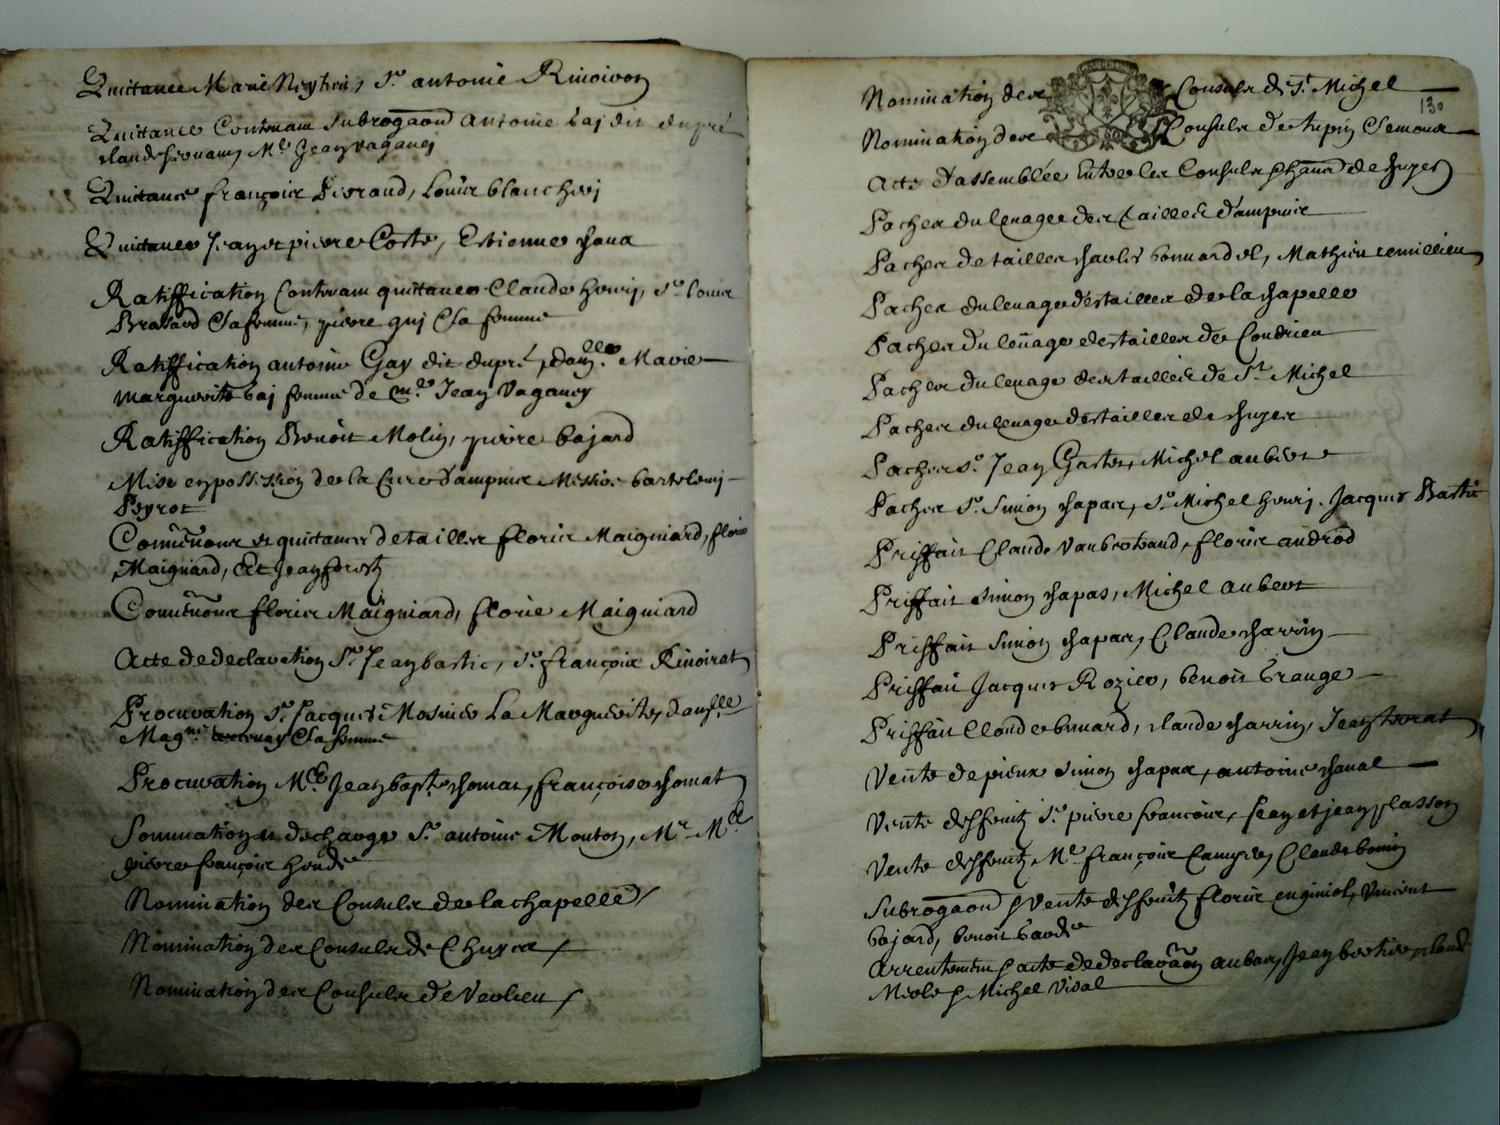 Quittance Marie Neyhri, Sr antoine Rivoiron
Quittance Contenant Subrogaôn antoine baj dit dupré
claude servant, Mre Jean vaganej
Quittance françoise Pevraud, Louis blanchej
Quittance Jean et pierre Coste, Estienne
Ratiffication Contenant quittance Claude henrj, Sr Louis
Brassard & sa femme, pierre guj & sa femme
Ratiffication antoine Gay dit dupré, damlle Marie
marguerite baj femme de Mre Jean Vaganey
Ratiffication Benoit Molin, pierre bajard
Mise en possession de la Cure d'ampuis Messire bartelemj
Peyrot
et quittance de tailles floris Maigniard, floris
Maigniard, Et Jean
floris Maigniard, floris Maigniard
Acte de declaration Sr Jean bastie, Sr françois Rivoirat
Procuration Sr Jacques Mosnier La Marguerite,
Magne & sa femme
Procuration Mre Jean bapte thomas, françoise thomat
Sommation et descharge Sr antoine Mouton, Mre
pierre françois
Nomination des Consuls de la chapelle
Nomination des Consuls de Chuyes
Nomination des Consuls de Verlieu
Nomination des Consuls de St Michel
130
Nomination des Consuls de tupin Semons
Acte d'assemblée Entre les Consuls & de chuyes
Paches du levage des tailles d'ampuis
Paches de tailles charles bonnardel, Mathieu remillieu
Paches du levage des tailles de la chapelle
Paches du levage des tailles de Condrieu
Paches du levage des tailles de St Michel
Paches du levage des tailles de chuyes
Paches Sr Jean Gaste, Michel aubert
Paches Sr Simon chapas, Sr Michel henrj, Jacques Bastie
Priffait Claude Vanbertrand, floris androd
Priffait Simon chapas, Michel aubert
Priffait Simon chapas, Claude charrin
Priffait Jacques Rozier, benoit Grange
Priffait Claude bonnard, claude charrin, Jean terrat
Vente de pieux Simon chapas, antoine chanal
Vente d'effruitz Sr pierre françois, Jean et jean plasson
Vente d'effruitz Mre françois Claude bonin
Subrogaôn & vente d'effruitz floris enginiol, Vincent
bajard, benoit
Arrentement & acte de declaraôn Jean
& Michel Vidal